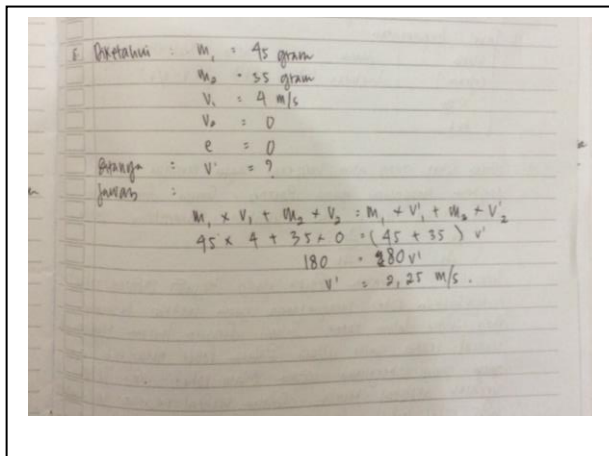 Diketahui : m₁ = 45 gram
m₂ = 35 gram
V₁ = 4 m/s
V₂ = 0
e = 0
Ditanya : V' = ?
Jawab :
m₁ × V₁ + m₂ × V₂ = m₁ × V'₁ + m₂ × V'₂
45 × 4 + 35 × 0 = (45 + 35) V'
180 = 80 V'
V' = 2,25 m/s.